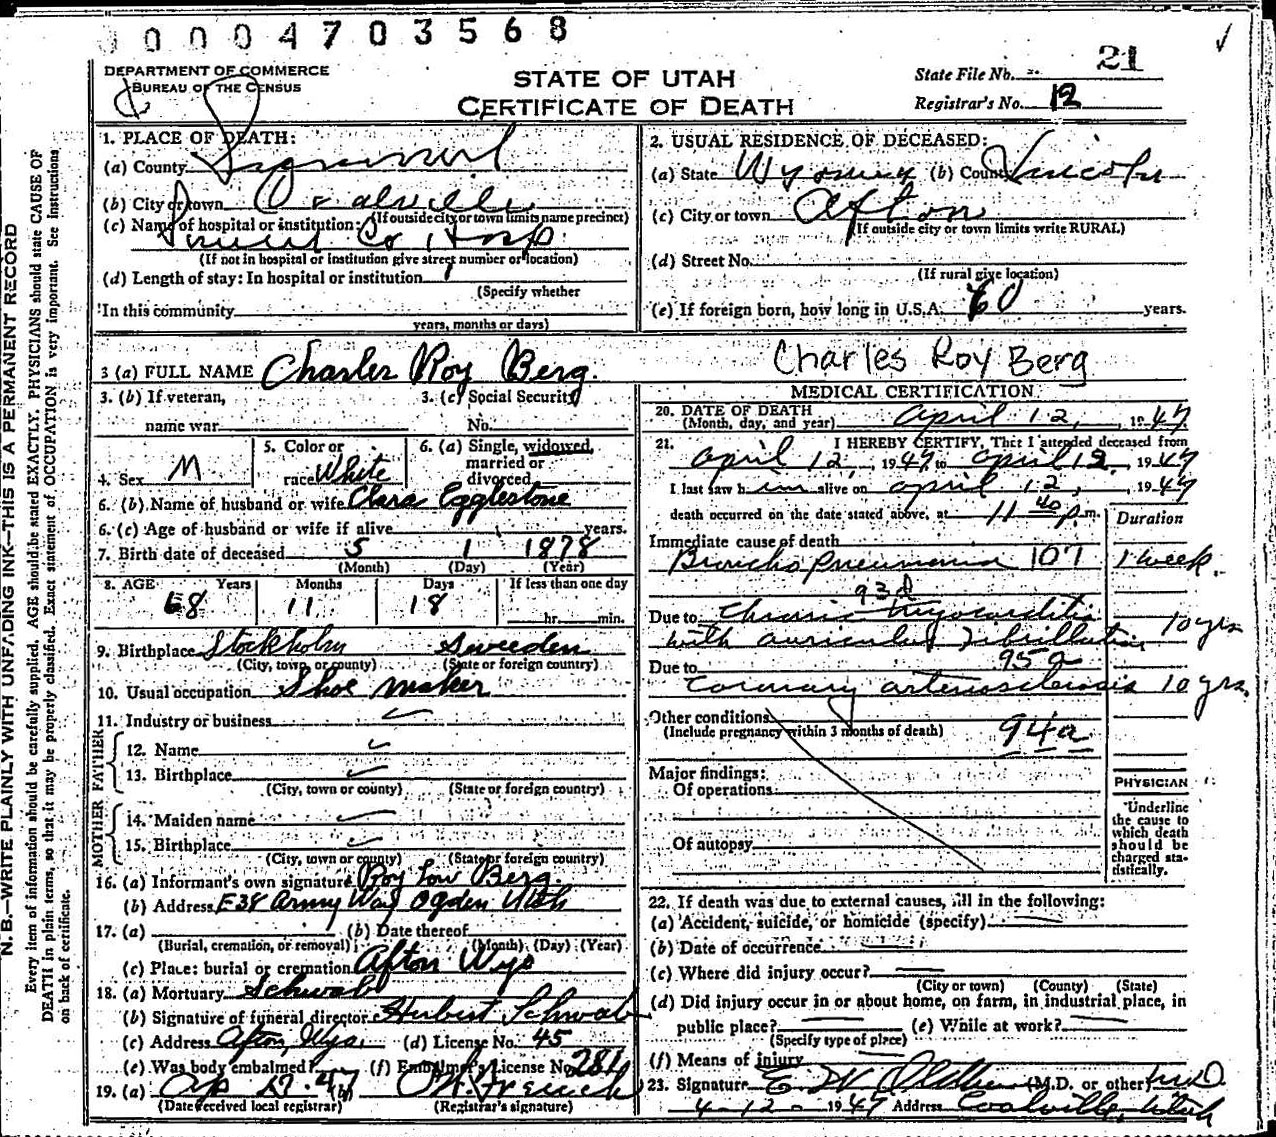 00004703568
DEPARTMENT OF COMMERCE
BUREAU OF THE CENSUS
STATE OF UTAH
CERTIFICATE OF DEATH
State File No. 21
Registrar's No. 12
N. B.—WRITE PLAINLY WITH UNFADING INK—THIS IS A PERMANENT RECORD
Every item of information should be carefully supplied. AGE should be stated EXACTLY. PHYSICIANS should state CAUSE OF
DEATH in plain terms, so that it may be properly classified. Exact statement of OCCUPATION is very important. See instructions
on back of certificate.
1. PLACE OF DEATH:
(a) County Summit
(b) City or town Coalville
(If outside city or town limits name precinct)
(c) Name of hospital or institution:
Summit Co Hosp.
(If not in hospital or institution give street number or location)
(d) Length of stay: In hospital or institution 1
(Specify whether
In this community
years, months or days)
2. USUAL RESIDENCE OF DECEASED:
(a) State Wyoming (b) County Lincoln
(c) City or town Afton
(If outside city or town limits write RURAL)
(d) Street No.
(If rural give location)
(e) If foreign born, how long in U.S.A. 60 years.
3 (a) FULL NAME Charles Roy Berg.
Charles Roy Berg
3. (b) If veteran,
name war
3. (c) Social Security
No.
4. Sex M
5. Color or
race White
6. (a) Single, widowed,
married or
divorced
6. (b) Name of husband or wife Clara Egglestone
6. (c) Age of husband or wife if alive years.
7. Birth date of deceased 5 1 1878
(Month) (Day) (Year)
8. AGE Years Months Days If less than one day
68 11 18 hr. min.
9. Birthplace Stockholm Sweeden
(City, town, or county) (State or foreign country)
10. Usual occupation Shoe maker
11. Industry or business
FATHER
12. Name
13. Birthplace
(City, town or county) (State or foreign country)
MOTHER
14. Maiden name
15. Birthplace
(City, town or county) (State or foreign country)
16. (a) Informant's own signature Roy Low Berg
(b) Address E38 Army Way Ogden Utah
17. (a) (b) Date thereof
(Burial, cremation, or removal) (Month) (Day) (Year)
(c) Place: burial or cremation Afton Wyo
18. (a) Mortuary Schwab
(b) Signature of funeral director Herbert Schwab
(c) Address Afton, Wyo. (d) License No. 45
(e) Was body embalmed? (f) Embalmer's License No. 281
19. (a) Ap 27-47 (b)
(Date received local registrar) (Registrar's signature)
MEDICAL CERTIFICATION
20. DATE OF DEATH
(Month, day, and year) April 12, 1947
21. I HEREBY CERTIFY, That I attended deceased from
April 12, 1947 to April 12, 1947
I last saw him alive on April 12, 1947
death occurred on the date stated above, at 11 40 p.m.
Duration
Immediate cause of death
Broncho Pneumonia 107 1 week.
93d
Due to Chronic Myocarditis
with auricular Fibrillation 10 yrs
Due to 95a
Coronary arteriosclerosis 10 yrs.
Other conditions
(Include pregnancy within 3 months of death) 94a
Major findings:
Of operations
Of autopsy
PHYSICIAN
Underline
the cause to
which death
should be
charged sta-
tistically.
22. If death was due to external causes, fill in the following:
(a) Accident, suicide, or homicide (specify)
(b) Date of occurrence
(c) Where did injury occur?
(City or town) (County) (State)
(d) Did injury occur in or about home, on farm, in industrial place, in
public place? (e) While at work?
(Specify type of place)
(f) Means of injury
23. Signature (M.D. or other) M.D.
4-12- 1947 Address Coalville, Utah